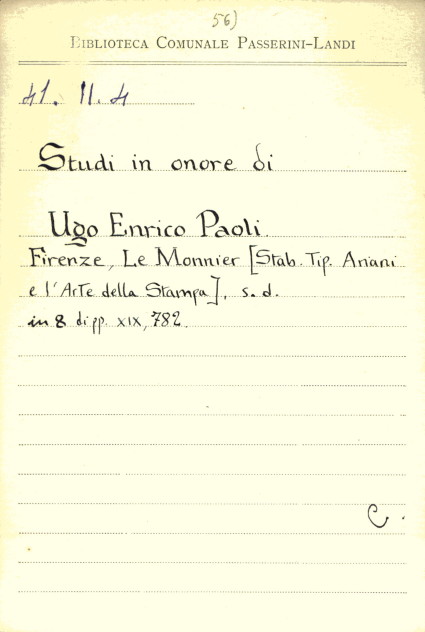 56)
BIBLIOTECA COMUNALE PASSERINI-LANDI
41. II. 4
Studi in onore di
Ugo Enrico Paoli.
Firenze, Le Monnier [Stab. Tip. Ariani
e l'Arte della Stampa], s. d.
in 8 di pp. XIX, 782.
C.